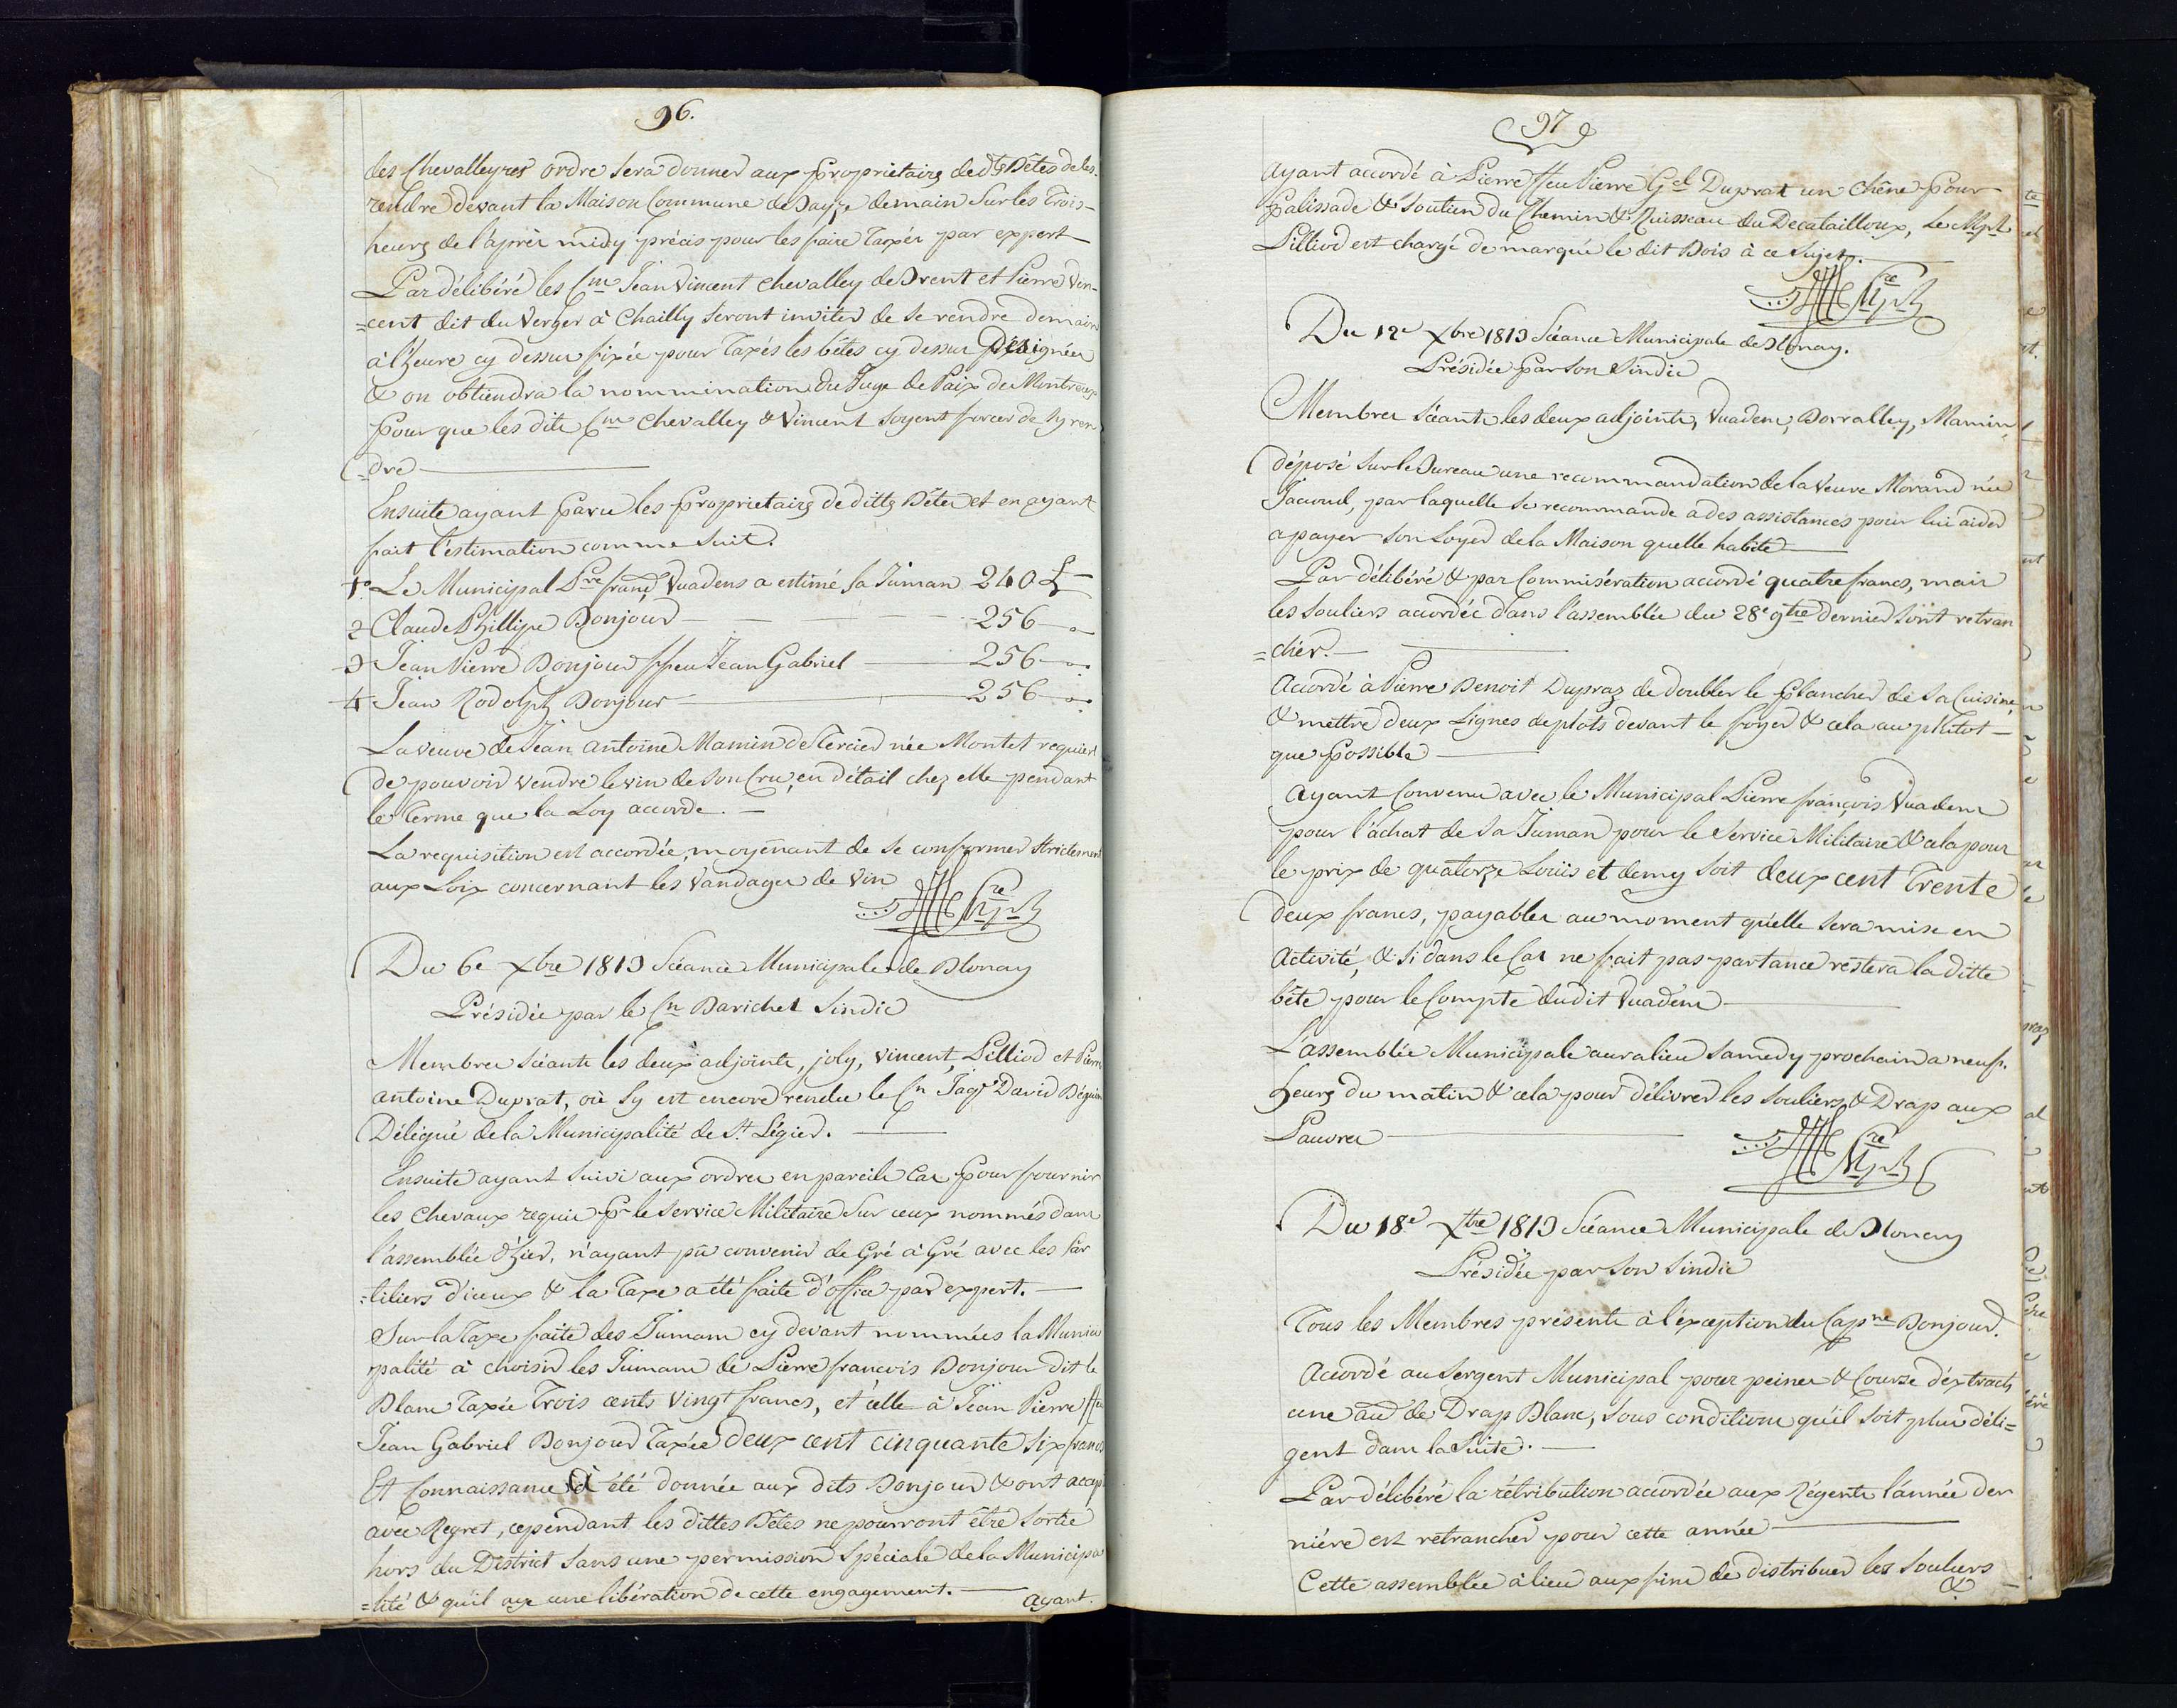 96.
des Chevalleyres ordre sera donner aux proprietaires de dtes Bêtes de les
rendre devant la Maison Commune de Bauge demain sur les Trois
heures de l'après midy précis pour les faire Taxér par expert
Par délibéré les Cns Jean Vincent Chevalley de Brent et Pierre Vin-
=cent dit du Verger à Chailly seront invités de se rendre demain
à l'heure cy dessus fixée pour Taxés les bêtes cy dessus Désignées
& on obtiendra la nommination du Juge de Paix de Montreux
pour que les dits Cns Chevalley & Vincent soyent forcés de sy ren
=dre
Ensuite ayant paru les proprietaires de dittes Bêtes et en ayant
fait l'estimation comme suit.
1° Le Municipal Pre franç Vuadens a estimé sa Jüman 240 £
2 Claude Phillipe Bonjour 256
3 Jean Pierre Bonjour ffeu Jean Gabriel 256
4 Jean Rodolph Bonjour 256
La veuve de Jean Antoine Mamin de Tercier née Montet requiert
de pouvoir vendre le vin de son Cru, en détail chez elle pendant
le Terme que la Loy accorde.
La requisition est accordée, moyénant de se conformer strictement
aux Loix concernant les Vandages de Vin
Du 6e Xbre 1813 Séance Municipale de Blonay
Présidée par le Cn Barichet Sindic
Membres séants les deux adjoints, joly, Vincent, Pilliod et Pierre
antoine Duprat, où sy est encore rendu le Cn Jaqs David Béguin
Délégué de la Municipalité de St Légier.
Ensuite ayant suivi aux ordres en pareils Cas pour fournir
les Chevaux requis pr le service Militaire sur ceux nommés dans
l'assemblée d'hier, n'ayant pû convenir de Gré à Gré avec les Par
=tiliers d'iceux & la Taxe a été faite d'office par expert.
Sur la Taxe faite des Jumans cy devant nommées la Munici
palité à choisir les Jumans de Pierre francois Bonjour dit le
Blanc Taxée Trois cents vingt francs, et celle à Jean Pierre ffeu
Jean Gabriel Bonjour Taxée Deux cent cinquante six francs
Et Connaissance à été donnée aux dits Bonjour & ont accep
avec Regret, cependant les dittes Bêtes ne pourront être sortie
hors du District sans une permission spéciale de la Municipa
=lité & qu'il aye une libération de cette engagement.
ayant
97
Ayant accordé à Pierre ffeu Pierre Gel Duprat un chêne pour
palissade & soutien du Chemin & Ruisseau du Decatailloux, Le Mpl
Pilliod est chargé de marqué le dit Bois à ce sujet.
Du 12e Xbre 1813 Séance Municipale de Blonay.
Présidée par son Sindic
Membres séants les deux adjoints, Vuadens, Borralley, Mamin
déposé sur le Bureau une recommandation de la Veuve Morand née
Jacoud, par laquelle se recommande à des assistances pour lui aider
a payer son Loyer de la Maison quelle habite
Par délibéré & par Commisération accordé quatre francs, mais
les souliers accordée dans l'assemblée du 28e 9bre dernier sont retran
=cher.
Accordé à Pierre Benoit Dupraz de doubler le plancher de sa Cuisine,
& mettre deux Lignes de plots devant le foyer & cela au plutot
que possible
Ayant Convenu avec le Municipal Pierre françois Vuadens
pour l'achat de sa Jüman pour le service Militaire & cela pour
le prix de quatorze Louis et demy soit deux cent Trente
deux francs, payables au moment qu'elle sera mise en
Activité, & si dans le Cas ne fait pas partance restera la ditte
bête pour le Compte du dit Vuadens
L'assemblée Municipale aura lieu samedy prochain a neuf
heures du matin & cela pour délivrer les souliers & Drap aux
Pauvres
Du 18e Xbre 1813 Séance Municipale de Blonay
Présidée par son Sindic
Tous les Membres présents à l'exception du Capne Bonjour.
Accordé au sergent Municipal pour peines & Course d'éxtracts
une au de Drap Blanc, sous conditions qu'il soit plus déli=
gent dans la suite.
Par délibéré la rétribution accordée aux Régents l'année der
nière est retrancher pour cette année
Cette assemblée à lieu aux fins de distribuer les souliers
&